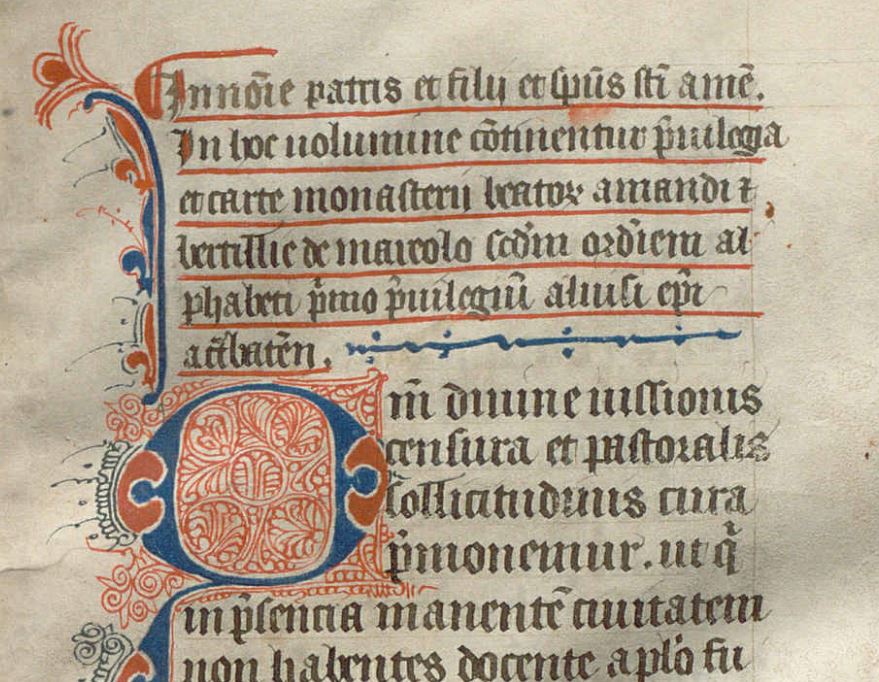 In noīe patris et filij et spūs scī amē.
In hoc uolumine cōtinentur p̄uilegia
et carte monasterij beatoꝝ amandi ⁊
bertilie de mareolo scd̄m ordīem al
phabeti p̄mo p̄uilegiū aluisi ep̄i
att̄baten̄.
Om̄ diuine uissionis
censura et pastoralis
sollicitudinis cura
p̄monemur. ut q̄
in p̄sencia manentē ciuitatem
non habentes docente aplo fu